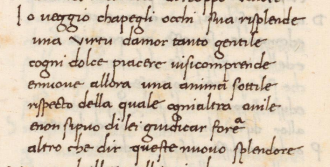 Io veggio chapegli occhi sua risplende
una virtu damor tanto gentile
cogni dolce piacere visicomprende
emuove allora una anima sottile
rispecto della quale ognialtra auile
enon sipuo di lei giudicar fore
altro che dir queste nuovo splendore